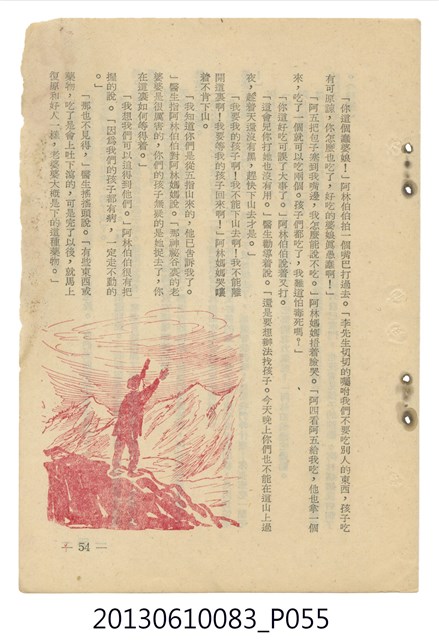 「你這個蠢婆娘！」阿林伯伯拍一個嘴巴打過去。「李先生切切的囑咐我們不要吃別人的東西，孩子吃
有可原諒，你怎麼也吃了，好吃的婆娘眞愚蠢啊！」
「阿五把包子塞到我嘴邊，我怎麼能說不吃。」阿林媽媽捂着臉哭。「阿四看阿五給我吃，他也拿一個
來，吃了一個就可以吃兩個。孩子們都吃了，我難道怕毒死嗎？」
「你這好吃可誤了大事了。」阿林伯伯說着又打。
「這會兒你打她也沒有用。」醫生勸導着說。「還是要想辦法找孩子。今天晚上你們也不能在這山上過
夜，趁着天還沒有黑，趕快下山去才是。」
「我要我的孩子啊！我不能下山去啊！我不能離
開這裏啊！我要等我的孩子回來啊！」阿林媽媽哭嚷
着不肯下山。
「我知道你們是從五指山來的，他已告訴我了。
」醫生指阿林伯伯對阿林媽媽說。「那神祕谷裏的老
婆婆是很厲害的，你們的孩子無疑的是她捉去了，你
在這裏如何等得着。」
「我想我們可以追得到他們。」阿林伯伯很有把
握的說。「因爲我們的孩子都有病，一定走不動的
。」
「那也不見得，」醫生搖搖頭說。「有些東西或
藥物，吃了是會上吐下瀉的，可是完了以後，就馬上
復原和好人一樣，老婆婆大概是下的這種藥物。」
— 54 —
20130610083_P055